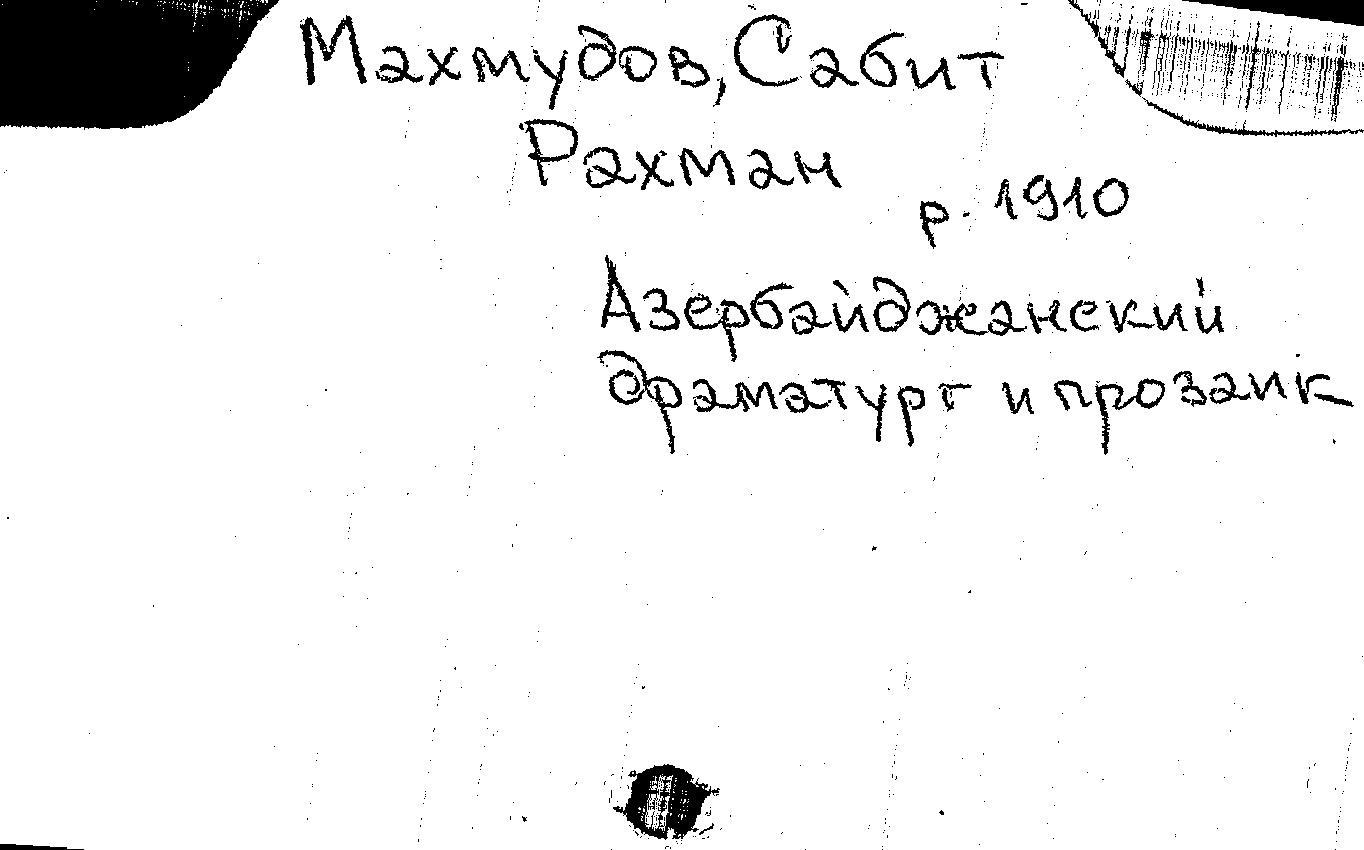 Махмудов, Сабит
Рахман
р. 1910
Азербайджанский
драматург и прозаик